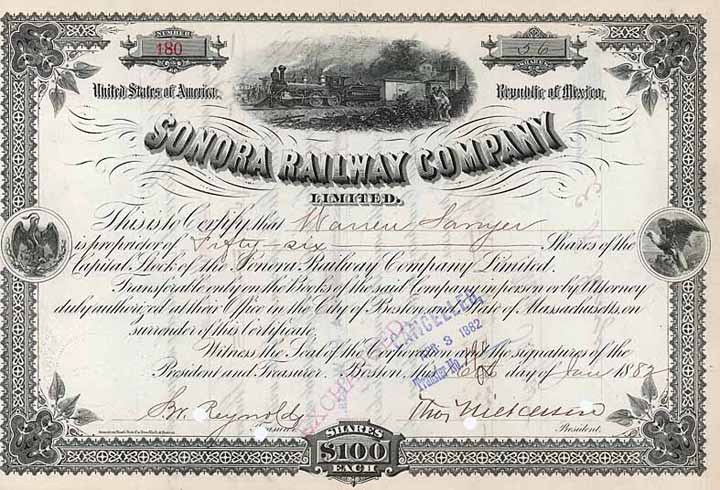 NUMBER
180
56
SHARES
United States of America.
Republic of Mexico.
SONORA RAILWAY COMPANY
LIMITED.
This is to Certify that Warren Sawyer
is proprietor of Fifty-six Shares of the
Capital Stock of the Sonora Railway Company Limited.
Transferable only on the Books of the said Company in person or by Attorney
duly authorized at their Office in the City of Boston and State of Massachusetts, on
surrender of this Certificate.
Witness the Seal of the Corporation and the signatures of the
President and Treasurer. Boston, this day of Jan 1882
CANCELLED
3 1882
Transfer No
EXCHANGED
S. W. Reynolds
Thos Nickerson
Treasurer.
President.
American Bank Note Co. New York & Boston.
SHARES
$100
EACH